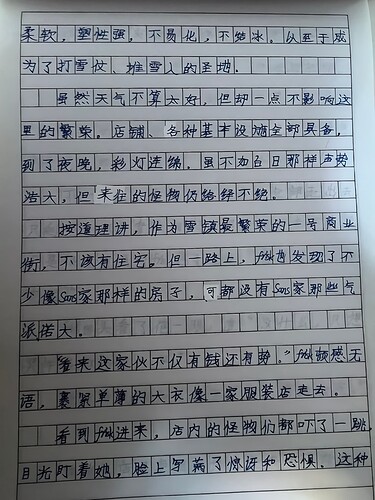 柔软，塑性强，不易化，不结冰。以至于成
为了打雪仗、堆雪人的圣地。
虽然天气不算太好，但却一点不影响这
里的繁荣。店铺、各种基本设施全部具备。
到了夜晚，彩灯连绵，虽不如白日那样声势
浩大，但来往的怪物仍络绎不绝。
按道理讲，作为雪镇最繁荣的一号商业
街，不该有住宅。但一路上，frisk曾发现了不
少像Sans家那样的房子，可都没有Sans家那些气
派诺大。
“看来这家伙不仅有钱还有势。”frisk顿感无
语，裹紧单薄的大衣像一家服装店走去。
看到frisk进来，店内的怪物们都吓了一跳，
目光盯着她，脸上写满了惊讶和恐惧。这种